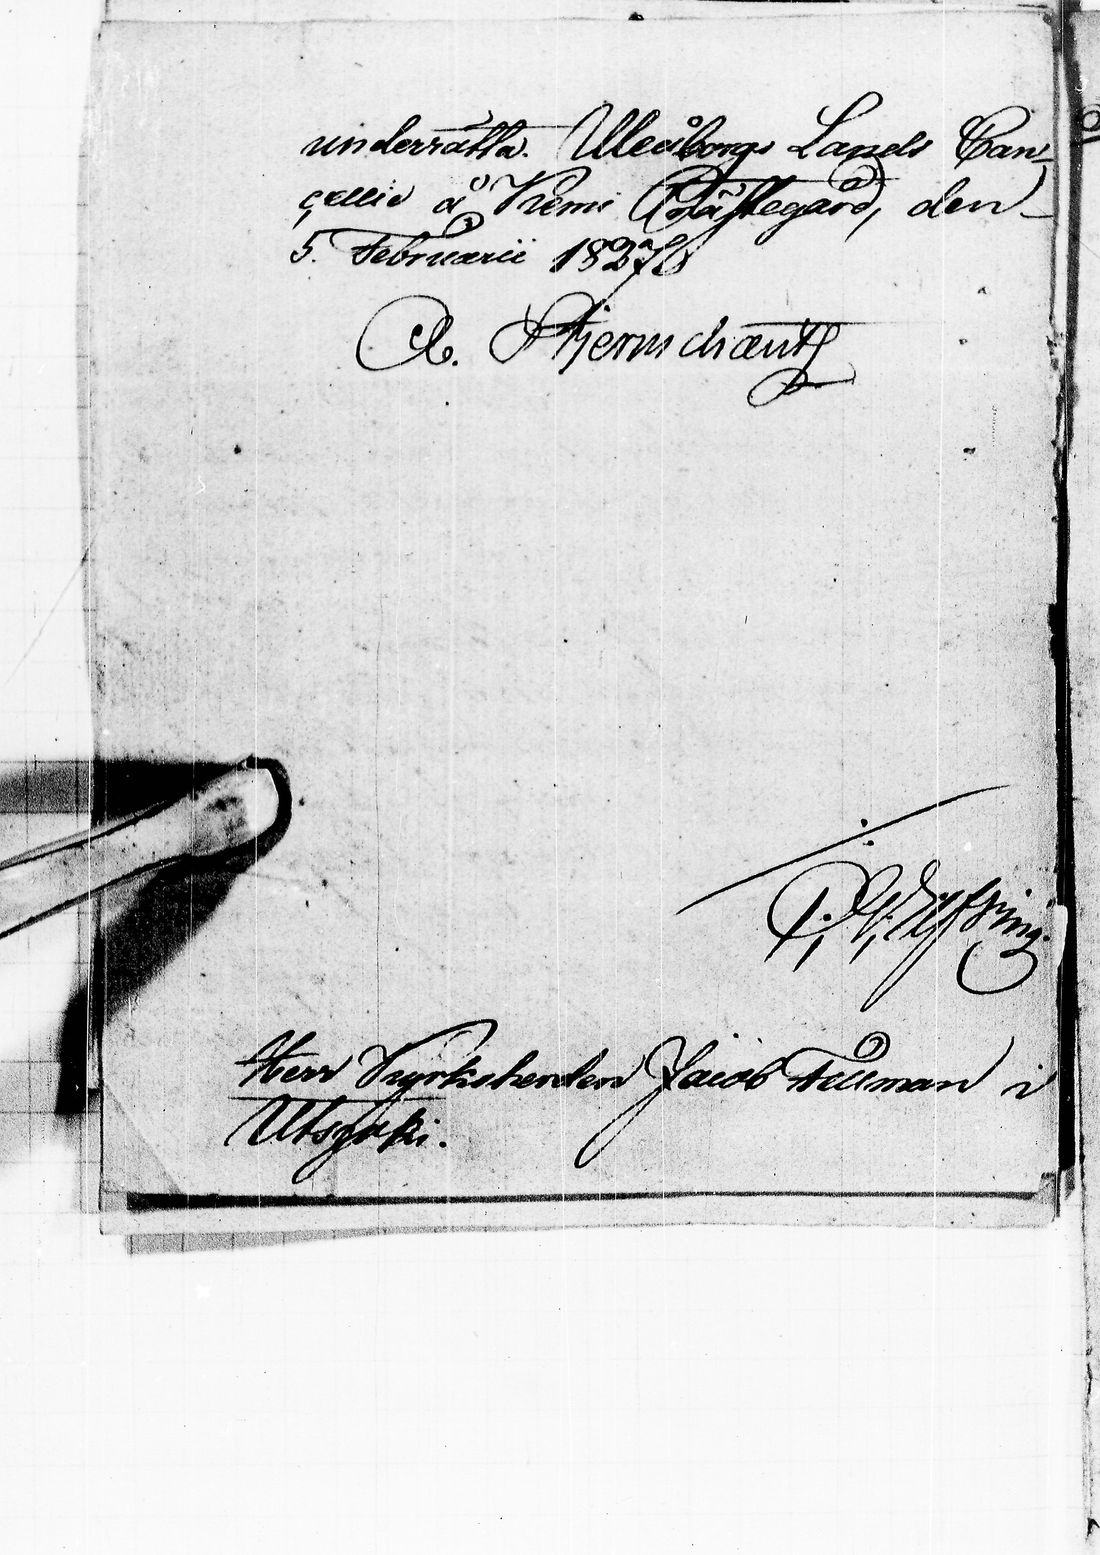 underrätta. Uleåborgs Lands Can-
cellie å Kemi Prästegård, den
5. Februarii 1827.
A. Stjernschantz
P. W. Gyffring.
Herr Kyrkoherden Jacob Fellman i
Utsjoki.